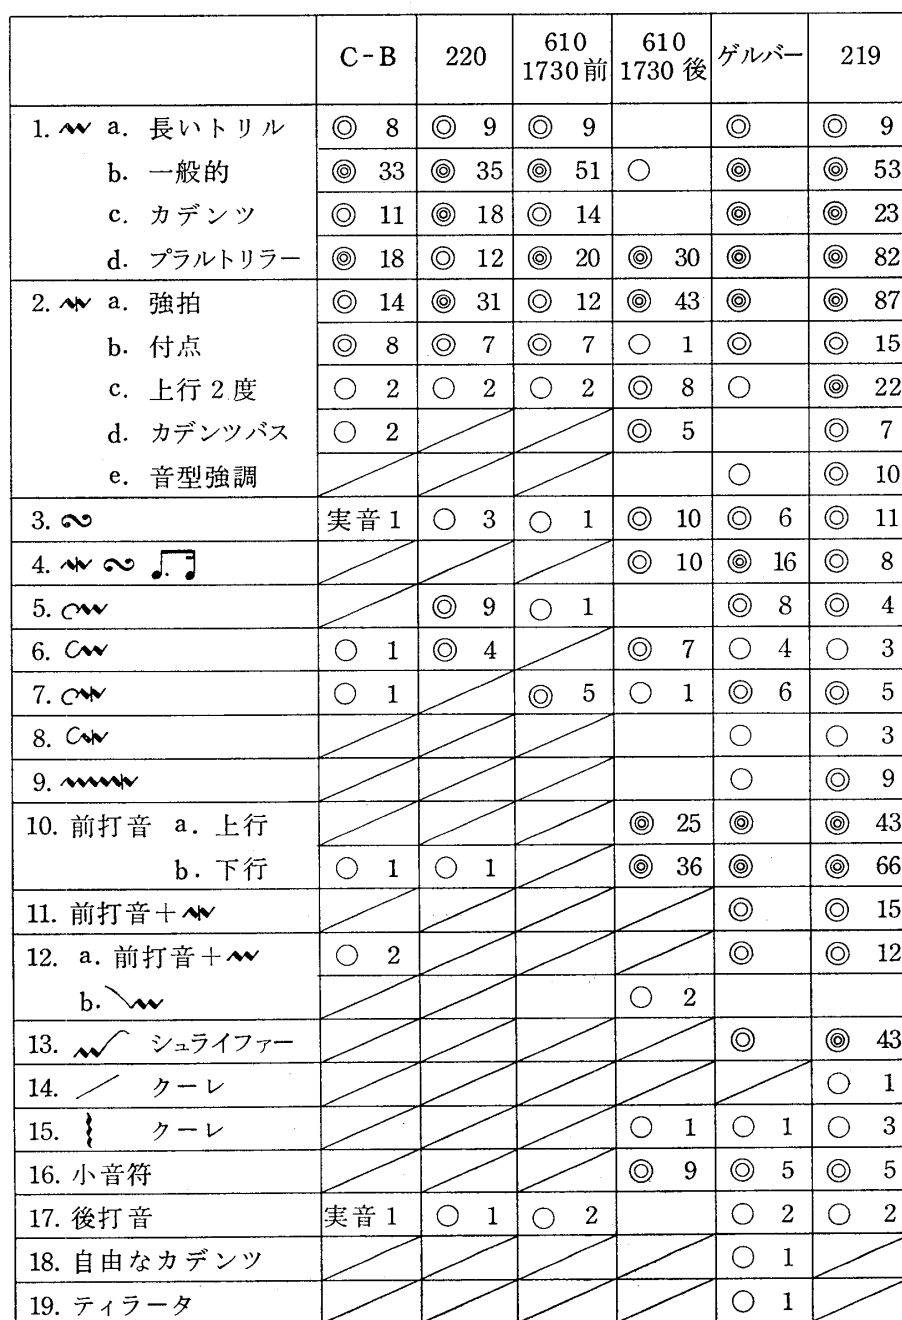 C-B 220 610 1730前 610 1730後 ゲルバー 219
1. a. 長いトリル ◎ 8 ◎ 9 ◎ 9 ◎ ◎ 9
b. 一般的 ◎ 33 ◎ 35 ◎ 51 ○ ◎ ◎ 53
c. カデンツ ◎ 11 ◎ 18 ◎ 14 ◎ ◎ 23
d. プラルトリラー ◎ 18 ◎ 12 ◎ 20 ◎ 30 ◎ ◎ 82
2. a. 強拍 ◎ 14 ◎ 31 ◎ 12 ◎ 43 ◎ ◎ 87
b. 付点 ◎ 8 ◎ 7 ◎ 7 ○ 1 ◎ ◎ 15
c. 上行2度 ○ 2 ○ 2 ○ 2 ◎ 8 ○ ◎ 22
d. カデンツバス ○ 2 ◎ 5 ◎ 7
e. 音型強調 ○ ◎ 10
3. 実音1 ○ 3 ○ 1 ◎ 10 ◎ 6 ◎ 11
4. ◎ 10 ◎ 16 ◎ 8
5. ◎ 9 ○ 1 ◎ 8 ◎ 4
6. ○ 1 ◎ 4 ◎ 7 ○ 4 ○ 3
7. ○ 1 ◎ 5 ○ 1 ◎ 6 ◎ 5
8. ○ ○ 3
9. ○ ◎ 9
10. 前打音 a. 上行 ◎ 25 ◎ ◎ 43
b. 下行 ○ 1 ○ 1 ◎ 36 ◎ ◎ 66
11. 前打音+ ◎ ◎ 15
12. a. 前打音+ ○ 2 ◎ ◎ 12
b. ○ 2
13. シュライファー ◎ ◎ 43
14. クーレ ○ 1
15. クーレ ○ 1 ○ 1 ○ 3
16. 小音符 ◎ 9 ◎ 5 ◎ 5
17. 後打音 実音1 ○ 1 ○ 2 ○ 2 ○ 2
18. 自由なカデンツ ○ 1
19. ティラータ ○ 1